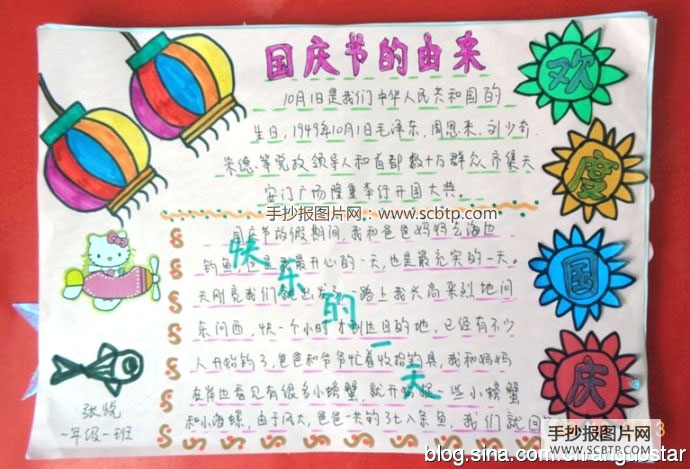 国庆节的由来
10月1日是我们中华人民共和国的
生日,1949年10月1日毛泽东、周恩来、刘少奇、
朱德等党政领导人和首都数十万群众齐集天
安门广场隆重举行开国大典。
手抄报图片网:www.scbtp.com
欢
度
国
庆
快乐的一天
国庆节的假期间,我和爸爸妈妈去海边
钓鱼,是我最开心的一天,也是最充实的一天。
天刚亮我们就出发了,一路上我兴高采烈地问
东问西,快一个小时才到达目的地,已经有不少
人开始钓了,爸爸和爷爷忙着收拾钓具,我和妈妈
在岸边看见有很多小螃蟹,就开始捉一些小螃蟹
和小海螺,由于风大,爸爸一共钓了七八条鱼,我们就回
张悦
一年级一班
手抄报图片网
WWW.SCBTP.COM
blog.sina.com.cn/rangubstar